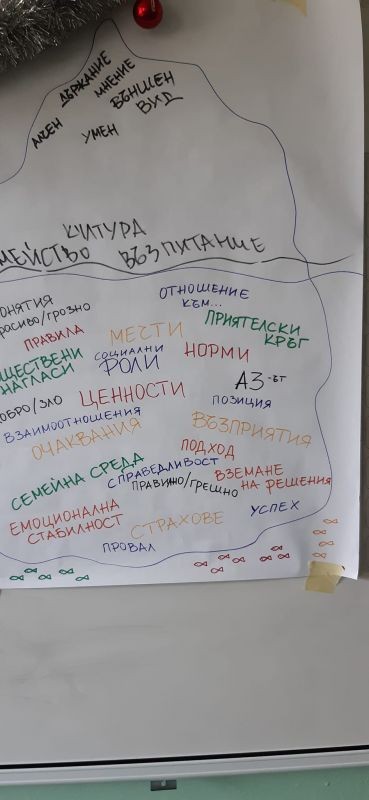 ДЪРЖАНИЕ
МНЕНИЕ
ВЪНШЕН
ВИД
УМЕН
КУЛТУРА
МЕЙСТВО ВЪЗПИТАНИЕ
ОНЯТИЯ
РАСИВО/ГРОЗНО
ОТНОШЕНИЕ
КЪМ...
ПРИЯТЕЛСКИ
КРЪГ
ПРАВИЛА
МЕЧТИ
ЩЕСТВЕНИ
НАГЛАСИ
СОЦИАЛНИ
РОЛИ
НОРМИ
АЗ-ЪТ
ОБРО/ЗЛО
ЦЕННОСТИ
ПОЗИЦИЯ
ВЗАИМООТНОШЕНИЯ
ОЧАКВАНИЯ
ВЪЗПРИЯТИЯ
ПОДХОД
СЕМЕЙНА СРЕДА
СПРАВЕДЛИВОСТ
ПРАВИЛНО/ГРЕШНО
ВЗЕМАНЕ
НА РЕШЕНИЯ
ЕМОЦИОНАЛНА
СТАБИЛНОСТ
СТРАХОВЕ
УСПЕХ
ПРОВАЛ